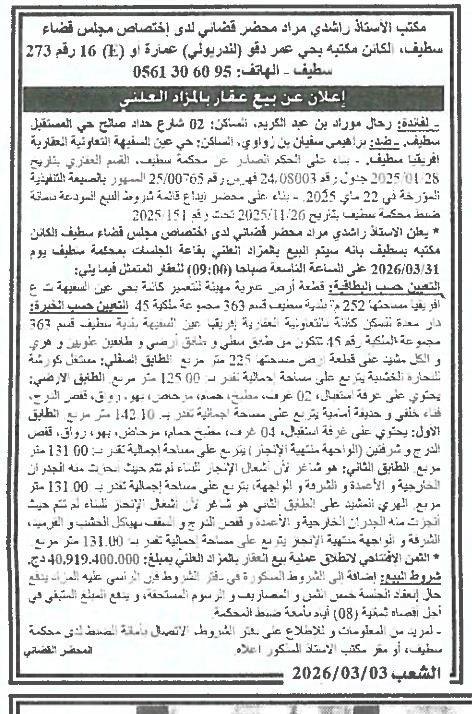 مكتب الأستاذ راشدي مراد محضر قضائي لدى إختصاص مجلس قضاء
سطيف، الكائن مكتبه بحي عمر دقو (لندريولي) عمارة او (E) 16 رقم 273
سطيف - الهاتف: 95 60 30 0561
إعلان عن بيع عقار بالمزاد العلني
* لفائدة: رحال موراد بن عبد الكريم، الساكن: 02 شارع حداد صالح حي المستقبل
سطيف. - ضد: براهيمي سفيان بن زواوي، الساكن: حي عين السفيهة التعاونية العقارية
إفريقيا سطيف. - بناء على الحكم الصادر عن محكمة سطيف، القسم العقاري بتاريخ
2025/01/28 جدول رقم 24/08003 فهرس رقم 25/00765 الممهور بالصيغة التنفيذية
المؤرخة في 22 ماي 2025. - بناء على محضر إيداع قائمة شروط البيع المودعة بأمانة
ضبط محكمة سطيف بتاريخ 2025/11/26 تحت رقم 2025/151
* يعلن الأستاذ راشدي مراد محضر قضائي لدى إختصاص مجلس قضاء سطيف الكائن
مكتبه بسطيف بأنه سيتم البيع بالمزاد العلني بقاعة الجلسات بمحكمة سطيف يوم
2026/03/31 على الساعة التاسعة صباحا (09:00) للعقار المتمثل فيما يلي:
التعيين حسب البطاقية: قطعة أرض عارية مهيئة للتعمير كائنة بحي عين السفيهة ت ع
أفريقيا مساحتها 252 م2 بلدية سطيف قسم 363 مجموعة ملكية 45 التعيين حسب الخبرة:
دار معدة للسكن كائنة بالتعاونية العقارية إفريقيا عين السفيهة بلدية سطيف قسم 363
مجموعة الملكية رقم 45 تتكون من طابق سفلي و طابق أرضي و طابقين علويين و هري
و الكل مشيد على قطعة أرض مساحتها 225 متر مربع. الطابق السفلي: مستغل كورشة
للنجارة الخشبية يتربع على مساحة إجمالية تقدر بـ: 125.00 متر مربع. الطابق الأرضي:
يحتوي على غرفة استقبال، 02 غرف، مطبخ، حمام، مرحاض، بهو، رواق، قفص الدرج،
فناء خلفي و حديقة أمامية يتربع على مساحة إجمالية تقدر بـ 142.10 متر مربع. الطابق
الأول: يحتوي على غرفة استقبال، 04 غرف، مطبخ حمام، مرحاض، بهو، رواق، قفص
الدرج و شرفتين (الواجهة منتهية الإنجاز) يتربع على مساحة إجمالية تقدر بـ: 131.00 متر
مربع. الطابق الثاني: هو شاغر لأن أشغال الإنجاز للبناء لم تتم حيث أنجزت منه الجدران
الخارجية و الأعمدة و الشرفة و الواجهة، يتربع على مساحة إجمالية تقدر بـ 131.00 متر
مربع. الهري المشيد على الطابق الثاني هو شاغر لأن أشغال الإنجاز للبناء لم تتم حيث
أنجزت منه الجدران الخارجية و الأعمدة و قفص الدرج و السقف بهيكل الخشب و القرميد،
الشرفة و الواجهة منتهية الإنجاز يتربع على مساحة إجمالية تقدر بـ: 131.00 متر مربع.
* الثمن الإفتتاحي لانطلاق عملية بيع العقار بالمزاد العلني بمبلغ: 40.919.400.000 دج.
شروط البيع: إضافة إلى الشروط المذكورة في دفتر الشروط فإن الراسي عليه المزاد يدفع
حال إنعقاد الجلسة خمس الثمن و المصاريف و الرسوم المستحقة، و يدفع المبلغ المتبقي في
أجل أقصاه ثمانية (08) أيام بأمانة ضبط المحكمة.
- لمزيد من المعلومات و للإطلاع على دفتر الشروط، الاتصال بأمانة الضبط لدى محكمة
سطيف، أو مقر مكتب الأستاذ المذكور أعلاه. المحضر القضائي
الشعب 2026/03/03